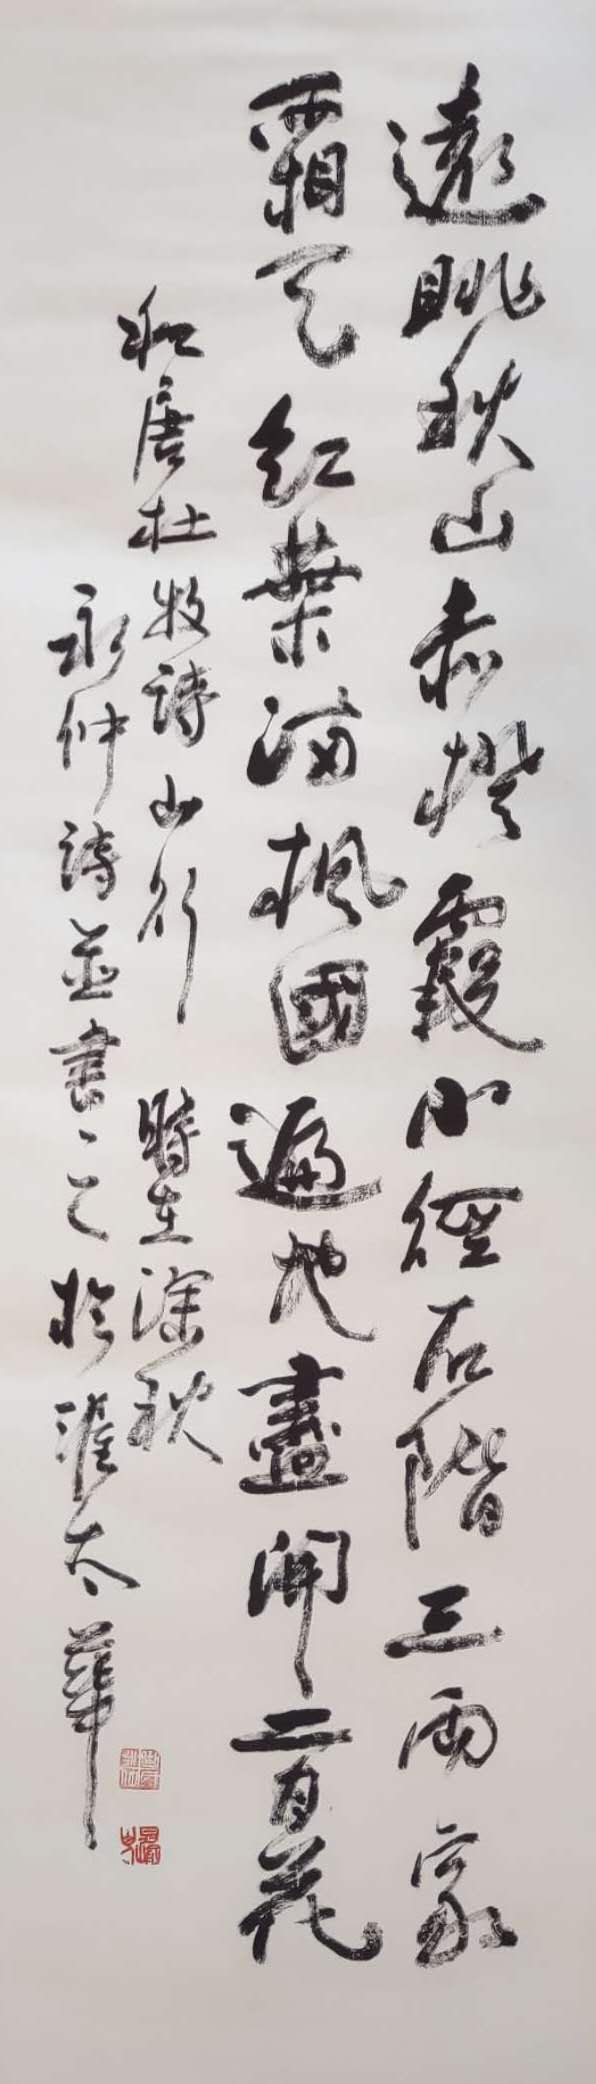 遠眺秋山赤橙霞小徑石階三兩家
霜天紅葉滿楓國遍地盡開二月花
和唐杜牧詩山行 時在深秋
永仲詩並書之於滙太華